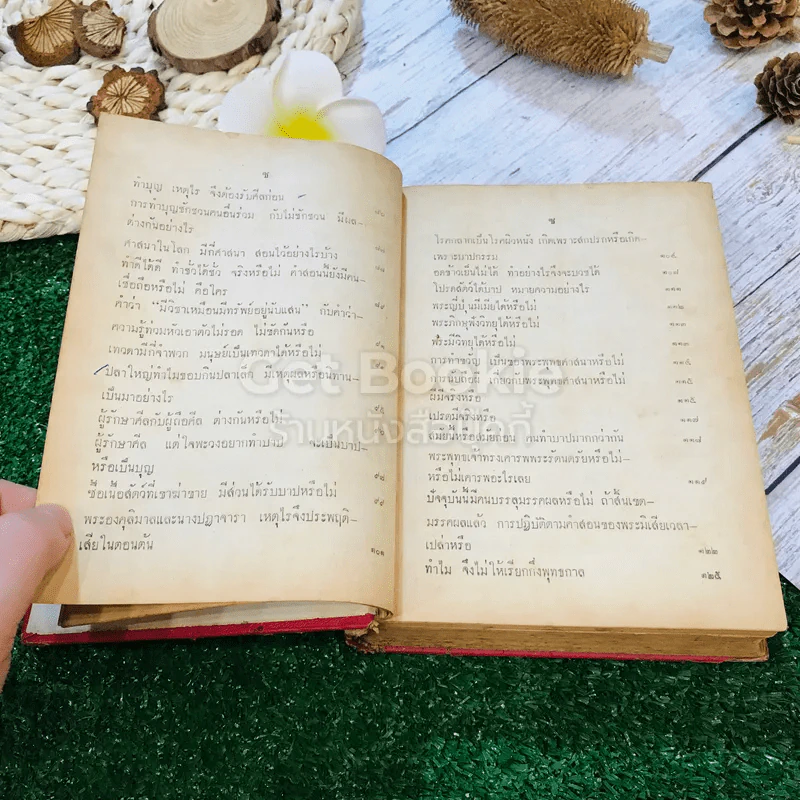 ช
ทำบุญ เหตุไร จึงต้องรับศีลก่อน
การทำบุญชักชวนคนอื่นร่วม กับไม่ชักชวน มีผล-
ต่างกันอย่างไร
ศาสนาในโลก มีกี่ศาสนา สอนไว้อย่างไรบ้าง
ทำดีได้ดี ทำชั่วได้ชั่ว จริงหรือไม่ คำสอนนี้ยังมีคน-
เชื่อถือหรือไม่ คือใคร
คำว่า "มีวิชาเหมือนมีทรัพย์อยู่นับแสน" กับคำว่า-
ความรู้ท่วมหัวเอาตัวไม่รอด ไม่ขัดกันหรือ
เทวดามีกี่จำพวก มนุษย์เป็นเทวดาได้หรือไม่
ปลาใหญ่ทำไมชอบกินปลาเล็ก มีเหตุผลหรือนิทาน-
เป็นมาอย่างไร
ผู้รักษาศีลกับผู้ถือศีล ต่างกันหรือไม่ ๙๕
ผู้รักษาศีล แต่ใจพะวงอยากทำบาป จะเป็นบาป-
หรือเป็นบุญ
ซื้อเนื้อสัตว์ที่เขาฆ่าขาย มีส่วนได้รับบาปหรือไม่ ๙๘
พระองคุลิมาลและนางปฏาจารา เหตุไรจึงประพฤติ- ๙๙
เสียในตอนต้น ๑๐๑
ซ
โรคกลากเป็นโรคผิวหนัง เกิดเพราะสกปรกหรือเกิด-
เพราะบาปกรรม ๑๐๔
อดข้าวเย็นไม่ได้ ทำอย่างไรจึงจะบวชได้ ๑๐๗
โปรดสัตว์ได้บาป หมายความอย่างไร ๑๑๑
พระญี่ปุ่นมีเมียได้หรือไม่ ๑๑๒
พระภิกษุฟังวิทยุได้หรือไม่ ๑๑๓
พระมีวิทยุได้หรือไม่
การทำขวัญ เป็นของพระพุทธศาสนาหรือไม่ ๑๑๕
การนับถือผี เกี่ยวกับพระพุทธศาสนาหรือไม่
ผีมีจริงหรือ ๑๑๕
เปรตมีจริงหรือ
สมัยนี้หรือสมัยก่อน คนทำบาปมากกว่ากัน ๑๑๗
พระพุทธเจ้าทรงเคารพพระรัตนตรัยหรือไม่-
หรือไม่เคารพอะไรเลย ๑๑๙
ปัจจุบันนี้มีคนบรรลุมรรคผลหรือไม่ ถ้าสิ้นเขต-
มรรคผลแล้ว การปฏิบัติตามคำสอนของพระมิเสียเวลา-
เปล่าหรือ ๑๒๒
ทำไม จึงไม่ให้เรียกกึ่งพุทธกาล ๑๒๕
Get Bookie
ร้านหนังสือมือสอง